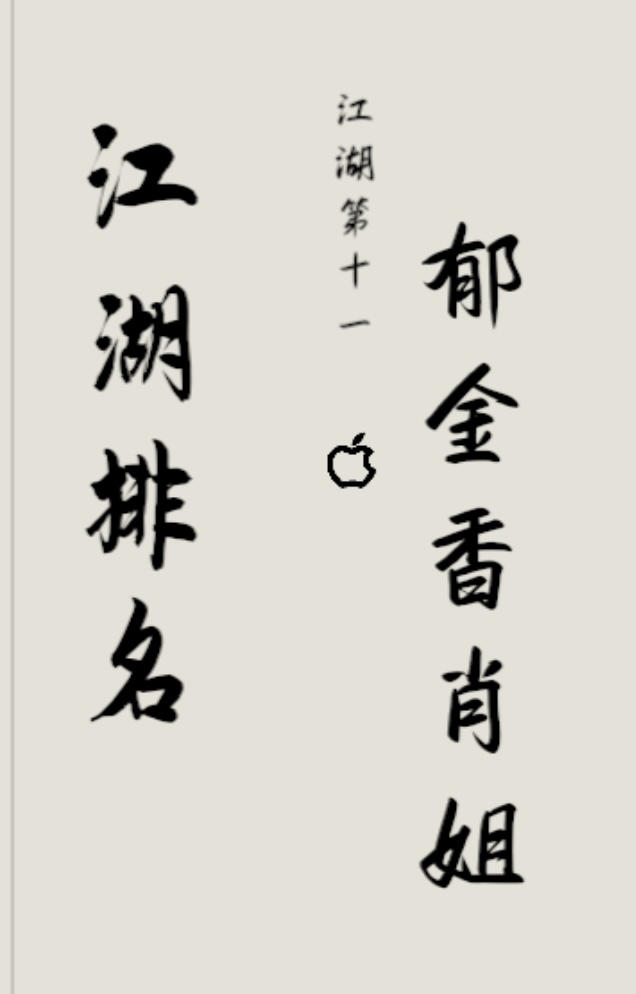 郁金香肖姐
江湖第十一
江湖排名